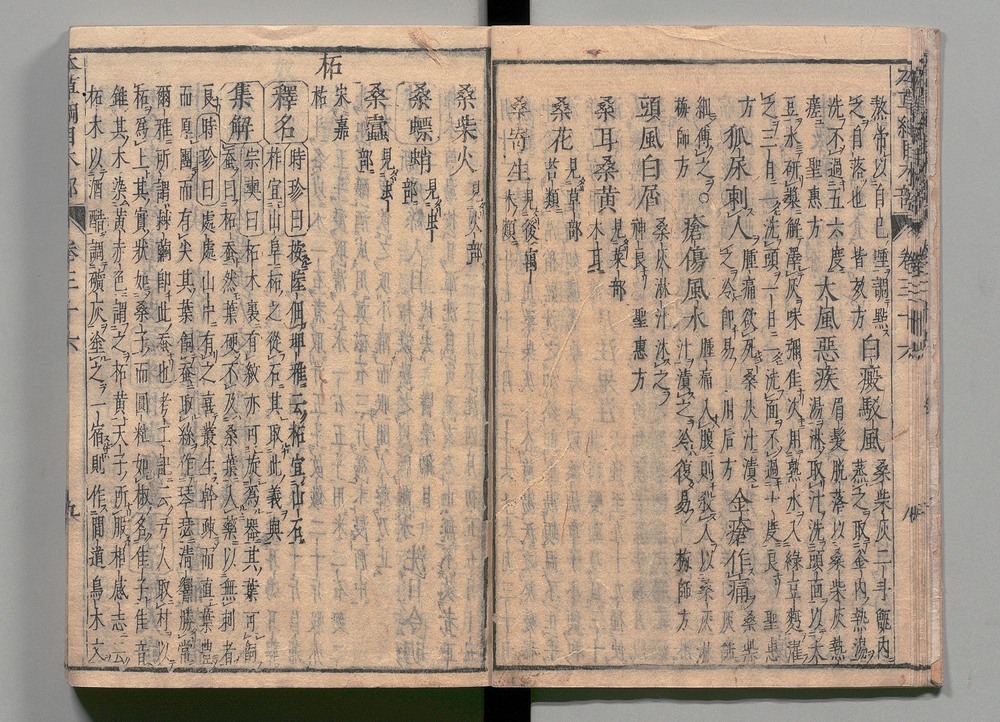 熬膏以自己唾調點之自落也 皆效方 白癜駁風 桑柴灰二斗甑内蒸之取釜内熱湯
洗不過五六度 聖惠方 大風惡疾 眉髮脱落以桑柴灰熱湯淋取汁洗頭面以大
豆水研漿解釋灰味彌佳次用熱水入綠豆麪濯之三日一洗頭一日一洗面不過十度良 聖惠
方 狐尿刺人 腫痛欲死桑灰汁漬之冷即易 肘后方 金瘡作痛 桑柴灰篩
細傅之 梅師方 瘡傷風水 腫痛入腹則殺人以桑灰淋汁漬之冷復易 梅師方
頭風白屑 桑灰淋汁沐之神良 聖惠方
桑耳桑黄 見菜部木耳
桑花 見草部苔類
桑寄生 見後寓木類
本草綱目木部 卷三十六
桑柴火 見火部
桑螵蛸 見虫部
桑蠹 見虫部
柘 宋嘉祐
釋名 時珍曰按陸佃埤雅云柘宜山石
柞宜山阜柘之從石其取此義與
集解 宗奭曰柘木裏有紋亦可旋為器其葉可飼
蠶曰柘蠶然葉硬不及桑葉入藥以無刺者
良 時珍曰處處山中有之喜叢生幹疎而直葉豐
而厚團而有尖其葉飼蠶取絲作琴瑟清響勝常
爾雅所謂棘繭即此蠶也考工記云弓人取材以
柘為上其實狀如桑子而圓粒如椒名佳子佳音
錐其木染黄赤色謂之柘黄天子所服相感志云
柘木以酒醋調礦灰塗之一宿則作間道烏木文
本草綱目木部 卷三十六 九